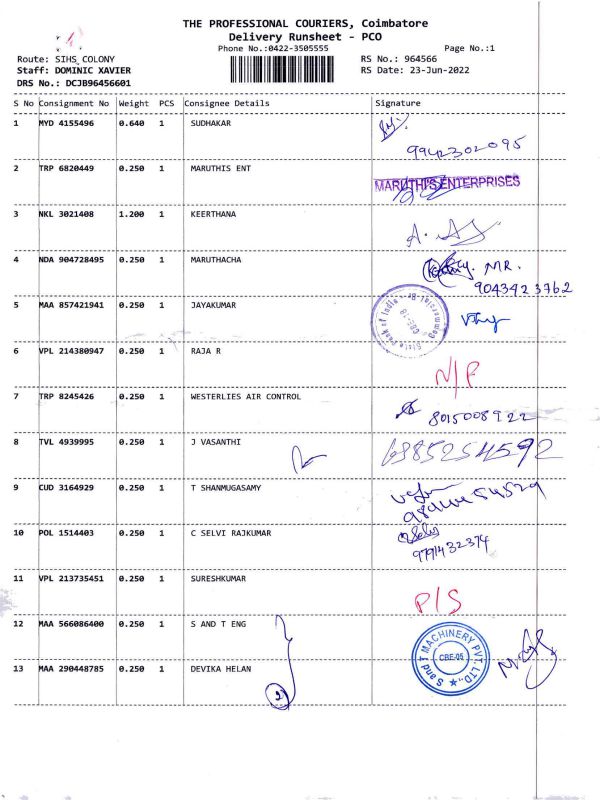 THE PROFESSIONAL COURIERS, Coimbatore
Delivery Runsheet - PCO
Phone No.:0422-3505555
Page No.:1
Route: SIHS COLONY
RS No.: 964566
Staff: DOMINIC XAVIER
RS Date: 23-Jun-2022
DRS No.: DCJB96456601
S No Consignment No Weight PCS Consignee Details Signature
1 MYD 4155496 0.640 1 SUDHAKAR
9942302095
2 TRP 6820449 0.250 1 MARUTHIS ENT
MARUTHI'S ENTERPRISES
3 NKL 3021408 1.200 1 KEERTHANA
4 NDA 904728495 0.250 1 MARUTHACHA
MR.
9043423762
5 MAA 857421941 0.250 1 JAYAKUMAR
State Bank of India
Commercial Br.
6 VPL 214380947 0.250 1 RAJA R
7 TRP 8245426 0.250 1 WESTERLIES AIR CONTROL
8015008922
8 TVL 4939995 0.250 1 J VASANTHI
9 CUD 3164929 0.250 1 T SHANMUGASAMY
10 POL 1514403 0.250 1 C SELVI RAJKUMAR
9791432374
11 VPL 213735451 0.250 1 SURESHKUMAR
P/S
12 MAA 566086400 0.250 1 S AND T ENG
S and T MACHINERY PVT. LTD.,
CBE-05
13 MAA 290448785 0.250 1 DEVIKA HELAN
2